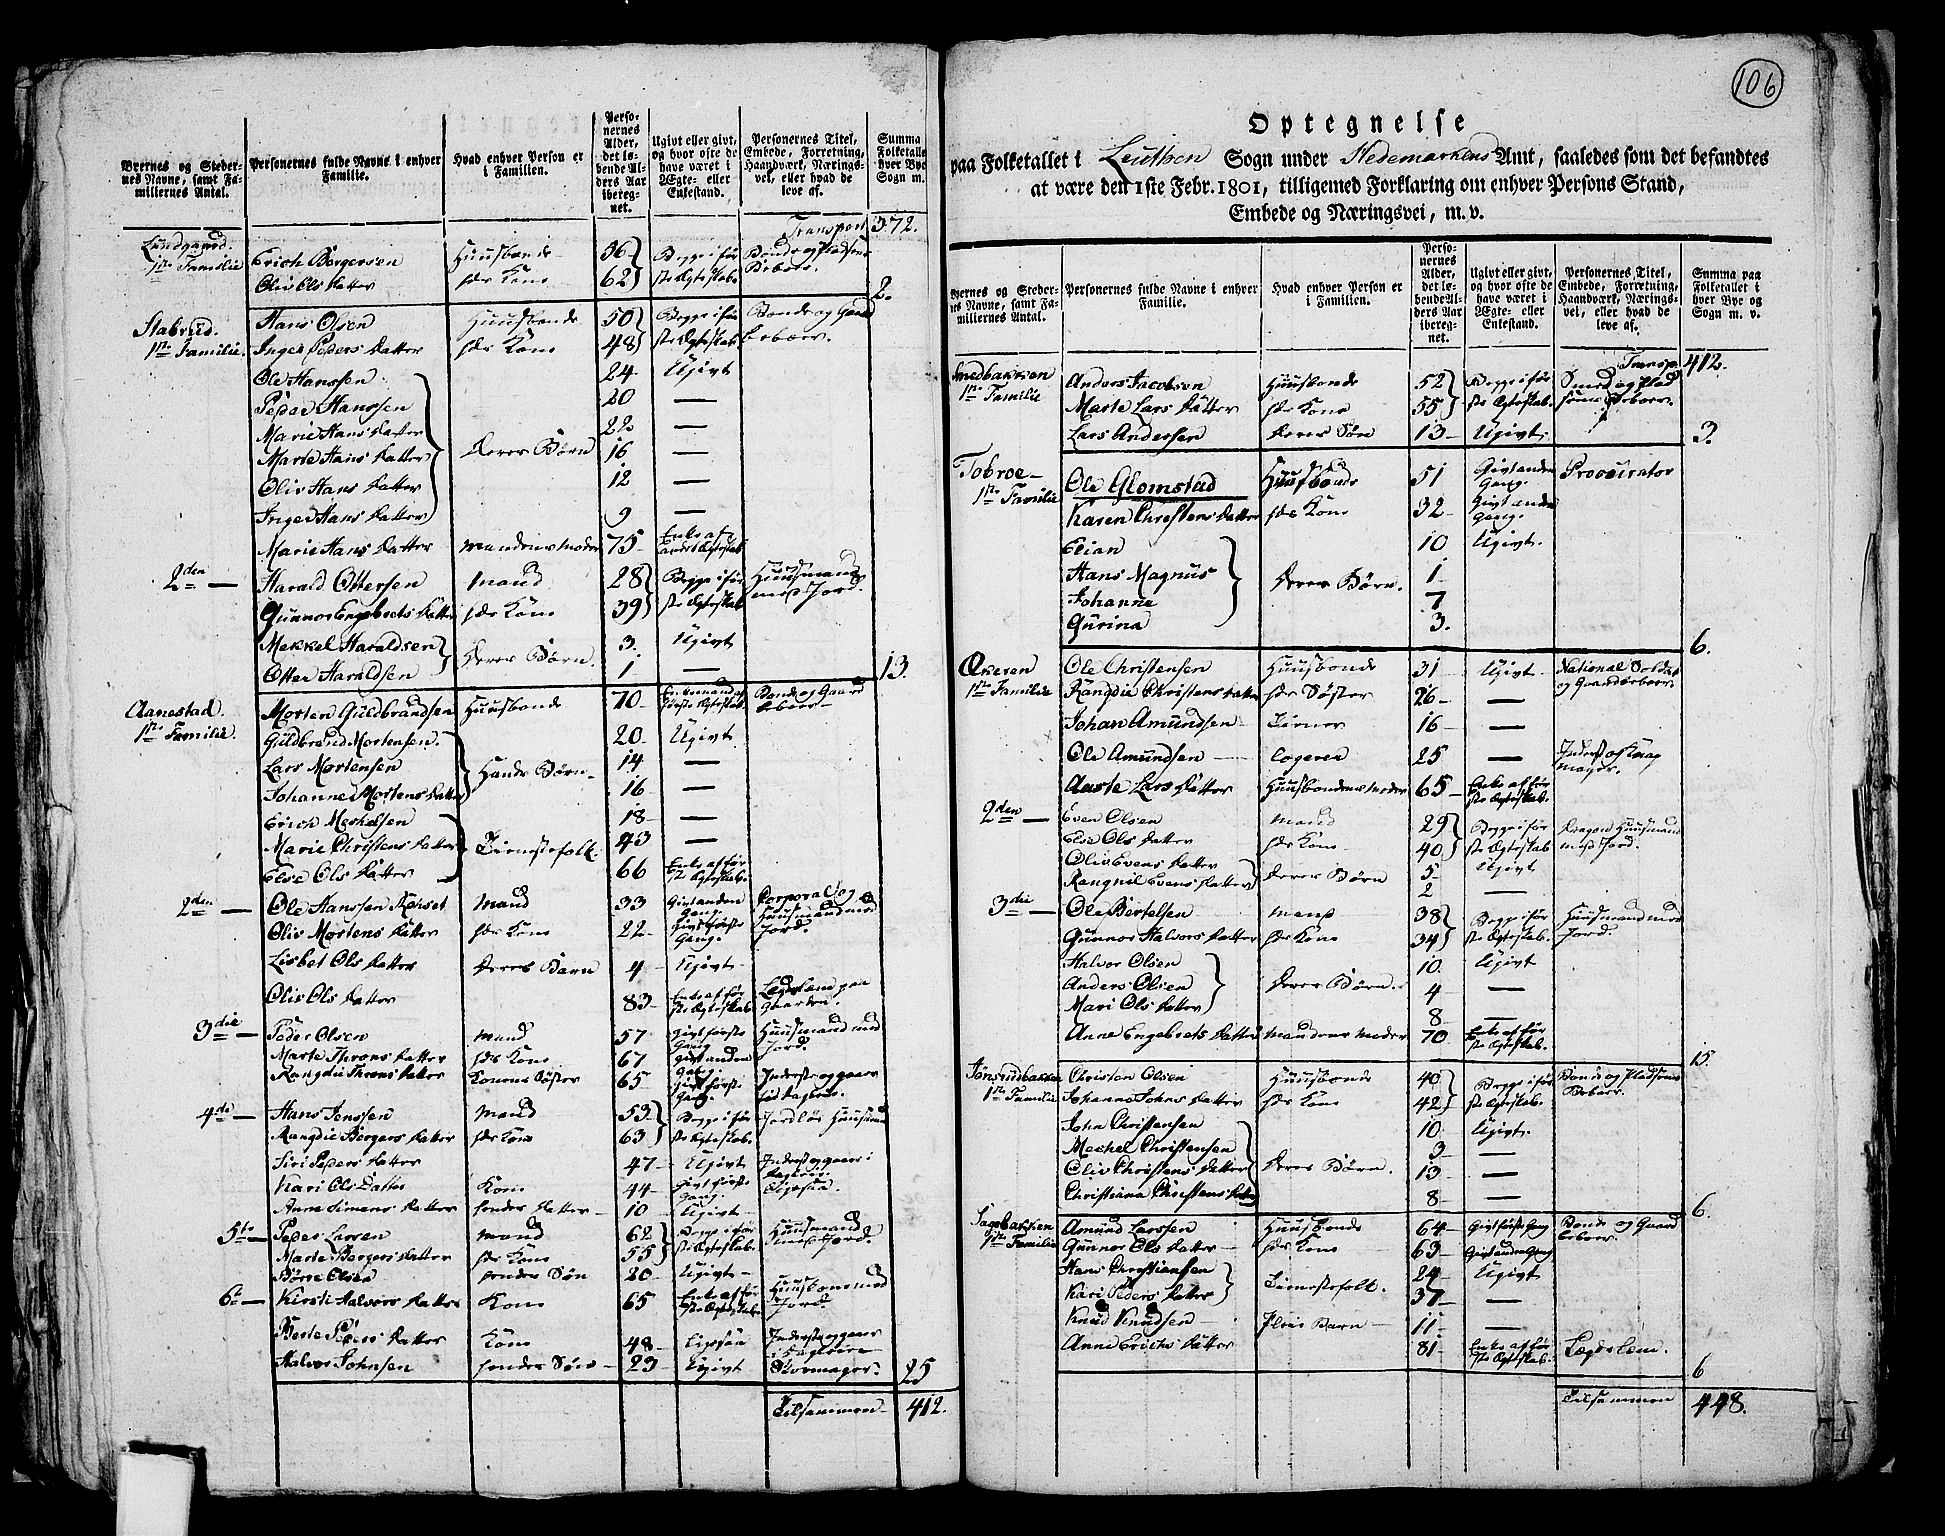 Byernes og Steder-
nes Navne, samt Fa-
millernes Antal.
Personernes fulde Navne i enhver
Familie.
Hvad enhver Person er
i Familien.
Perso-
nernes
Alder,
det le-
bende Al-
ders Aar
ibereg-
net.
Ugivt eller givt,
og hvor ofte de
have været i
Ægte- eller
Enkestand.
Personernes Titel,
Embede, Forretning,
Haandværk, Nærings-
vei, eller hvad de
leve af.
Summa
Folketallet
hver Bye
Sogn m.
Transport 372.
1ste Familie Erich Børgersen Huusbonde 36 Begge i før- Bonde og Pladsens
Oliv Ols Datter hs Kone 62 ste Ægteskab. Beboer.
2.
Stabrud. Hans Olsen Huusbonde 50 Begge i før- Bonde og Gaard
1ste Familie. Inger Peders Datter hs Kone 48 ste Ægteskab beboer.
Ole Hanssen 24 Ugivt
Peder Hanssen 20 —
Marie Hans Datter 22 —
Marte Hans Datter Deres Børn 16 —
Oliv Hans Datter 12 —
Inger Hans Datter 9 —
Marie Hans Datter Mandens Moder 75 Enke af andet Ægteskab
2den — Harald Ottersen Mand 28 Begge i før- Huusmand
Gunnor Engebrets Datter hs Kone 39 ste Ægteskab med Jord.
Mekkel Haraldsen 3. Ugivt
Otter Haraldsen Deres Børn. 1 —
13.
Aanestad. Morten Guldbrandsen Huusbonde 70 Enkemand af Bonde og Gaard
1ste Familie. første Ægteskab beboer
Guldbrand Mortensen. 20 Ugivt
Lars Mortensen Hands Børn 14 —
Johanne Mortens Datter 16 —
Erich Mechelsen 18 —
Marie Christens Datter Tienestefolk. 43 —
Else Ols Datter 66 Enke af før-
ste Ægteskab.
2den — Ole Hanssen Mand 33 Givt anden Corporal og
Gang. Huusmand med
Oliv Mortens Datter hs Kone 22 Givt første Jord.
Gang.
Lisbet Ols Datter Deres Barn 4 Ugivt
Olis Ols Datter 83 Enke af før- Lægdslem paa
ste Ægteskab Gaarden.
3die — Peder Olsen Mand 57 Givt første Huusmand med
Gang Jord.
Marte Throns Datter hs Kone 67 Givt anden
Gang.
Rangdie Throns Datter Konens Søster 65 Givt første Inderste og gaaer
Gang.
4de — Hans Jenssen Mand 53 Begge i før- Jordløs Huusmand
Rangdie Børgers Datter hs Kone 63 ste Ægteskab.
Siri Peders Datter 47 Ugivt Inderst og gaaer i
Kari Ols Datter Kone 44 Givt første
Gang.
Anne Simens Datter hendes Datter 10 Ugivt
5te — Peder Larsen Mand 62 Begge i før- Huusmand
Marte Børgers Datter hs Kone 55 ste Ægteskab. med Jord.
Børre Olsen hendes Søn 20 Ugivt
6te — Kirsti Halvors Datter Kone 65 Enke af før- Huuskone med
ste Ægteskab Jord.
Berte Peders Datter Kone 48 Inderste og gaaer
Halvor Johnsen hendes Søn 23 Ugivt Skomager.
25
Tilsammen 412.
106
Optegnelse
paa Folketallet i Leuthen Sogn under Hedemarkens Amt, saaledes som det befandtes
at være den 1ste Febr. 1801, tilligemed Forklaring om enhver Persons Stand,
Embede og Næringsvei, m. v.
Byernes og Steder-
nes Navne, samt Fa-
millernes Antal.
Personernes fulde Navne i enhver
Familie.
Hvad enhver Person er
i Familien.
Perso-
nernes
Alder,
det le-
bende Al-
ders Aar
ibereg-
net.
Ugivt eller givt,
og hvor ofte de
have været i
Ægte- eller
Enkestand.
Personernes Titel,
Embede, Forretning,
Haandværk, Nærings-
vei, eller hvad de
leve af.
Summa paa
Folketallet i
hver Bye og
Sogn m. v.
Transp. 412.
Smedbakken Anders Jacobsen Huusbonde 52 Begge i før- Smed og Plad
1ste Familie Marte Lars Datter hs Kone 55 ste Ægteskab. sens Beboer.
Lars Andersen Deres Søn 13 Ugivt
3.
Tobroe Ole Glomstad Huusbonde 51 Givt anden Procurator
1ste Familie Gang.
Karen Christens Datter hs Kone 32 Givt anden
Gang.
Elian 10 Ugivt.
Hans Magnus Deres Børn. 1
Johanne 7
Gurina 3.
6.
Økeren Ole Christensen Huusbonde 31 Ugivt National Soldat
1ste Familie Rangdie Christens Datter hs Søster 26 — og Gaardbeboer.
Johan Amundsen Tiener 16 —
Ole Amundsen logerer 25 —
Aaste Lars Datter Huusbondens Moder 65 Enke af før-
ste Ægteskab.
2den — Even Olsen Mand 29 Begge i før- Dragon Huusmand
Else Ols Datter hs Kone 40 ste Ægteskab med Jord.
Oliv Evens Datter 5 Ugivt
Rangnil Evens Datter Deres Børn 2 —
3die — Ole Bertelsen Mand 38 Begge i før- Huusmand med
Gunnor Halvors Datter hs Kone 34 ste Ægteskab. Jord.
Halvor Olsen 10 Ugivt
Anders Olsen Deres Børn. 4 —
Mari Ols Datter 8 —
Anne Engebrets Datter Mandens Moder 70 Enke af før-
ste Ægteskab.
15.
Jønsrudbakken Christen Olsen Huusbonde 40 Begge i før- Bonde og Pladsens
1ste Familie Johanne Johns Datter hs Kone 42 ste Ægteskab. Beboer.
John Christensen 10 Ugivt.
Mechel Christensen 3 —
Oliv Christens Datter Deres Børn. 13 —
Christiana Christens Datter 8 —
6.
Sagebakken Amund Larssen Huusbonde 64 Givt første Gang Bonde og Gaard
1ste Familie Gunnor Ols Datter hs Kone 63 Givt anden Gang beboer.
Hans Christianssen 24 Ugivt
Kari Peders Datter Tienestefolk. 37 —
Knud Knudsen Pleie Barn 11 —
Anne Erichs Datter 81 Enke af før- Lægdslem.
ste Ægteskab.
6
Tilsammen 448.